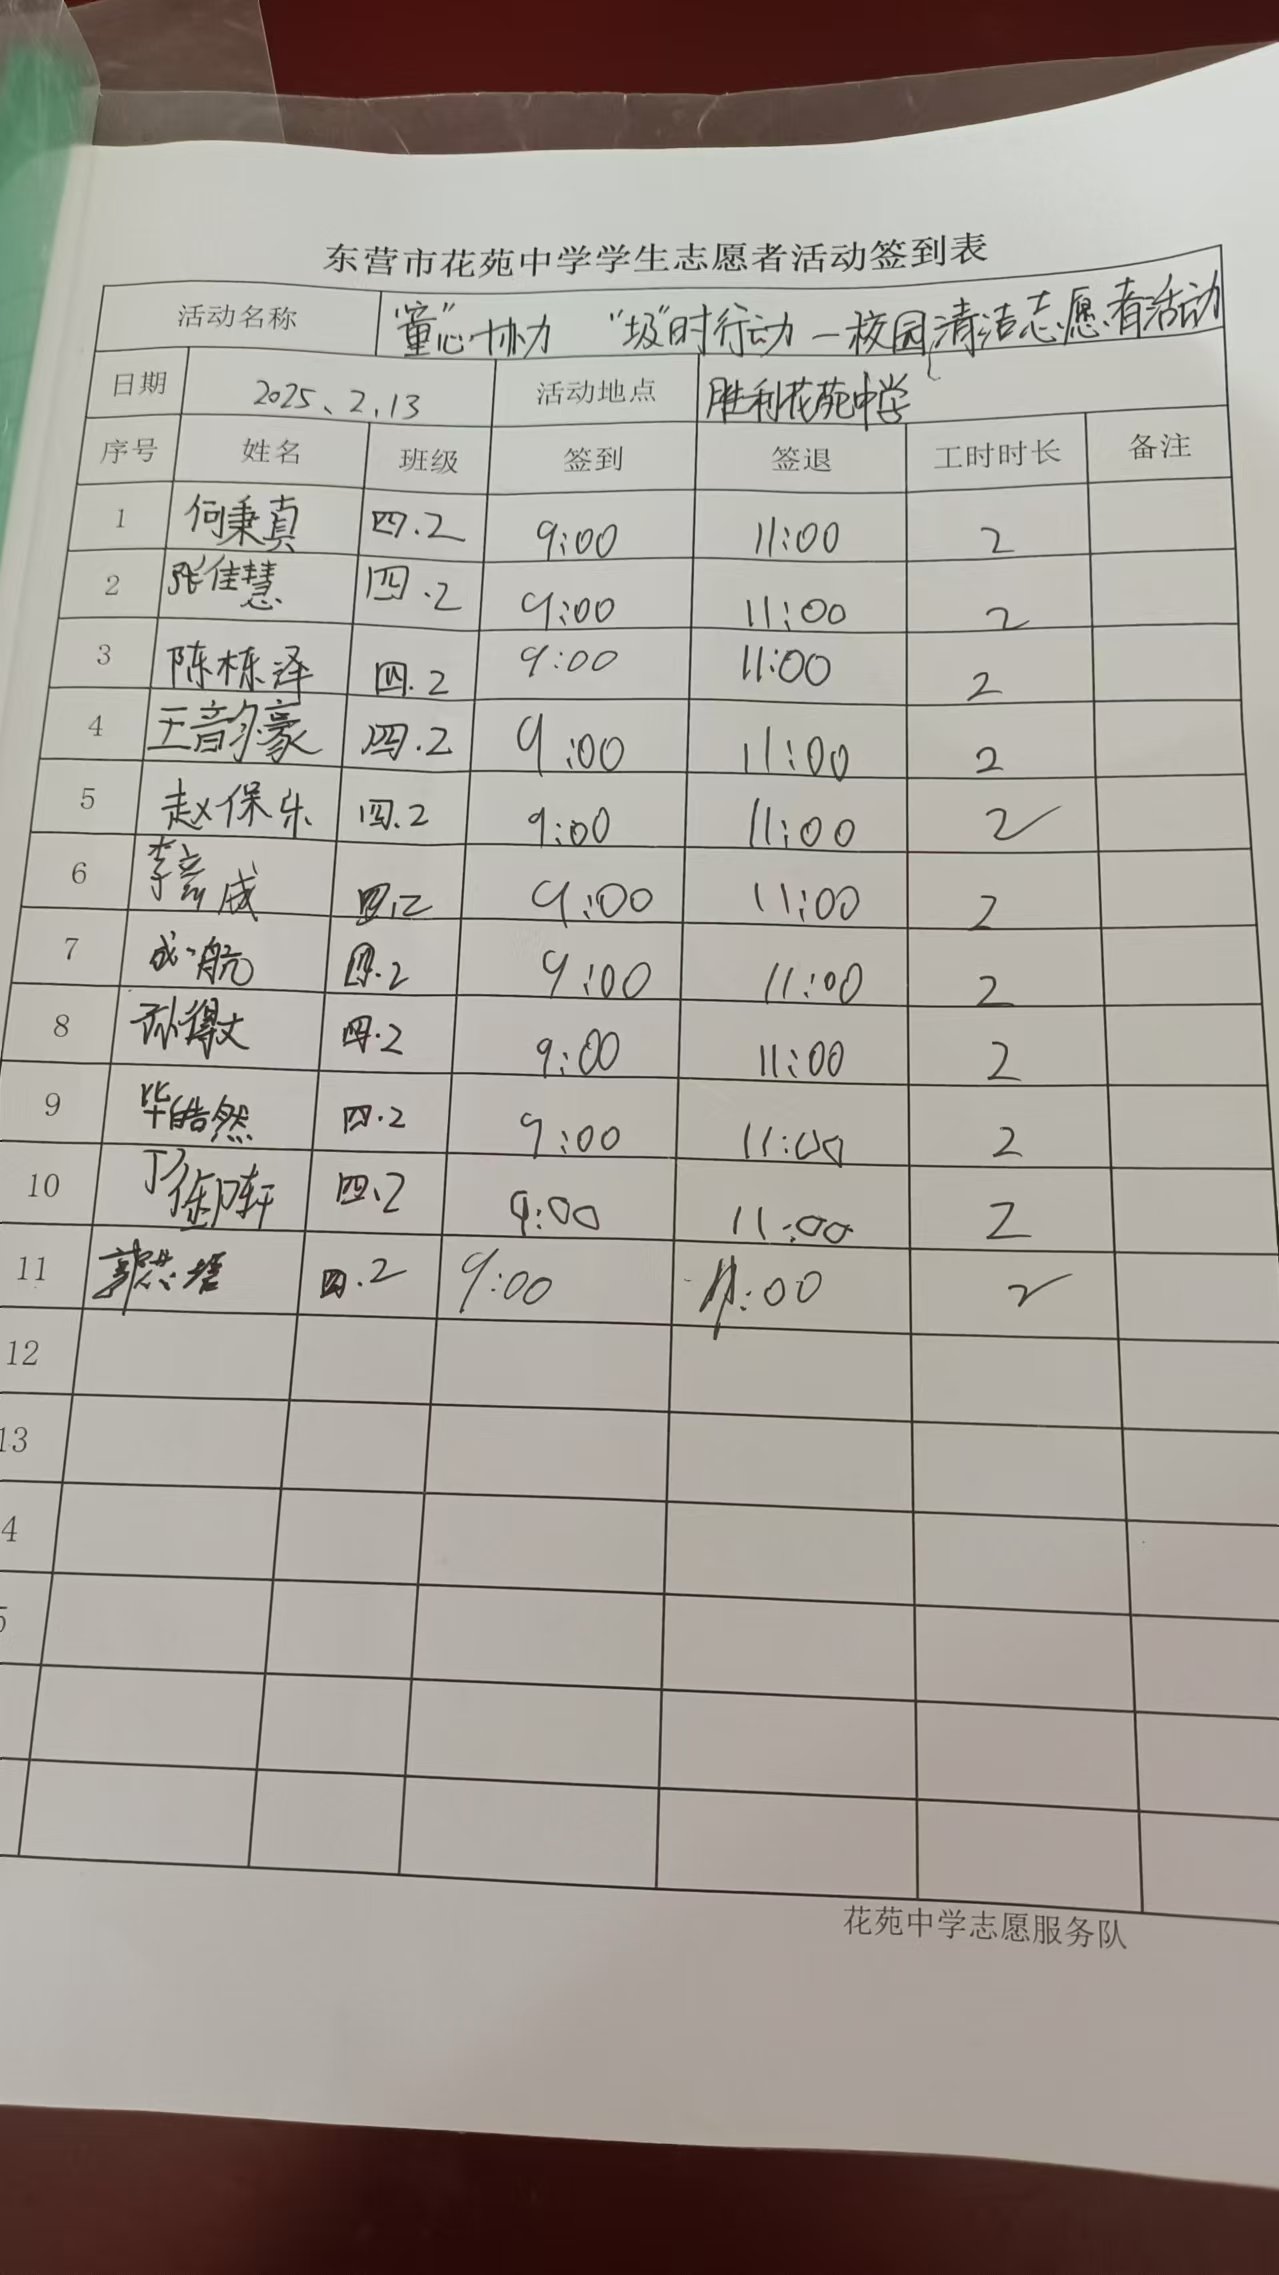 东营市花苑中学学生志愿者活动签到表
活动名称 "童"心协力 "圾"时行动 — 校园清洁志愿者活动
日期 2025、2.13 活动地点 胜利花苑中学
序号 姓名 班级 签到 签退 工时时长 备注
1 何秉真 四.2 9:00 11:00 2
2 张佳慧 四.2 9:00 11:00 2
3 陈栋泽 四.2 9:00 11:00 2
4 王韵豪 四.2 9:00 11:00 2
5 赵保乐 四.2 9:00 11:00 2
6 李彦成 四.2 9:00 11:00 2
7 成航 四.2 9:00 11:00 2
8 孙得文 四.2 9:00 11:00 2
9 毕皓然 四.2 9:00 11:00 2
10 四.2 9:00 11:00 2
11 四.2 9:00 11:00 2
12
13
4
5
花苑中学志愿服务队